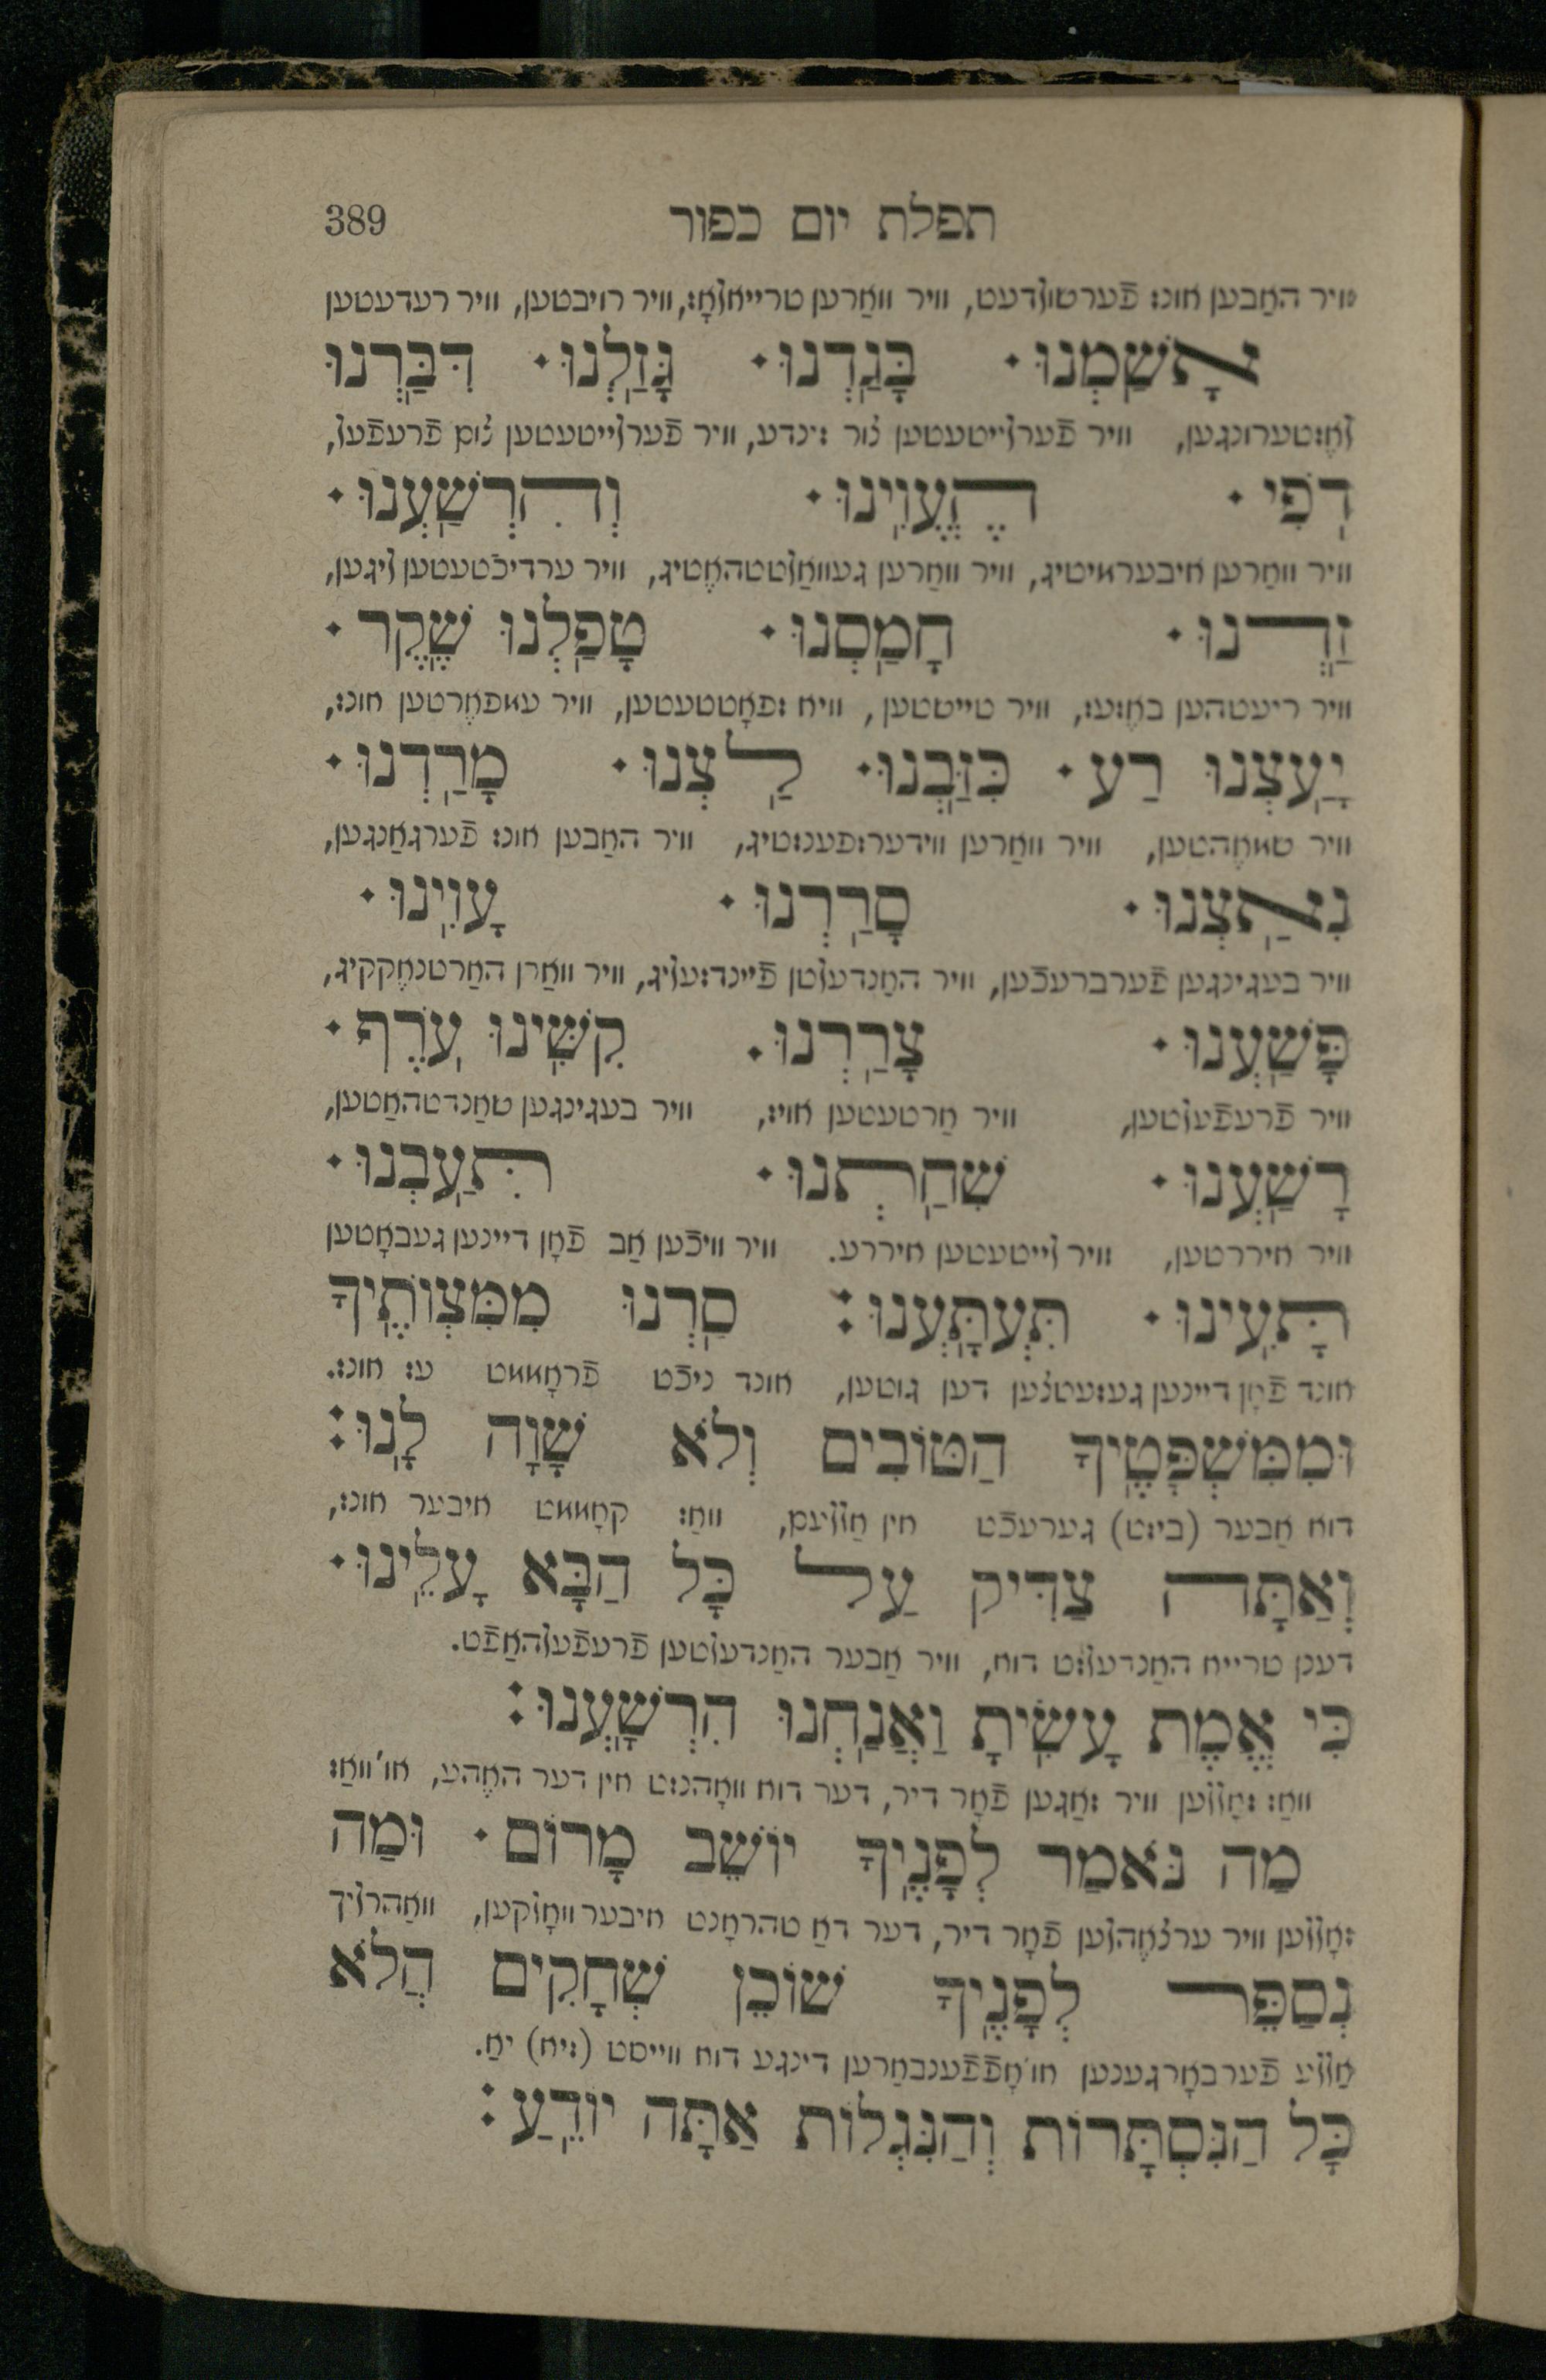 תפלת יום כפור 389
וויר האַבען אונז פֿערשולדעט, וויר וואַרען טרייאלאָז, וויר רויבטען, וויר רעדעטען
אָשַׁמְנוּ · בָּגַדְנוּ · גָּזַלְנוּ · דִּבַּרְנוּ
לאֶזטערונגען, וויר פֿערלייטעטען צור זינדע, וויר פֿערלייטעטען צום פֿרעפֿעל,
דֹפִי · הֶעֱוִינוּ · וְהִרְשַׁעְנוּ ·
וויר וואַרען איבערמיטיג, וויר וואַרען געוואַלטטהאֶטיג, וויר ערדיכֿטעטען ליגען,
זַדְנוּ · חָמַסְנוּ · טָפַלְנוּ שֶׁקֶר ·
וויר ריעטהען באֶזעז, וויר טייטטען, וויא זפאָטטעטען, וויר עמפאֶרטען אונז,
יָעַצְנוּ רַע · כִּזַּבְנוּ · לַצְנוּ · מָרַדְנוּ ·
וויר שמאֶהטען, וויר וואַרען ווידערזפענזטיג, וויר האַבען אונז פֿערגאַנגען,
נִאַצְנוּ · סָרַרְנוּ · עָוִינוּ ·
וויר בעגינגען פֿערברעכֿען, וויר האַנדעלטן פֿיינדזעליג, וויר וואַרן האַרטנאֶקקיג,
פָּשַׁעְנוּ · צָרַרְנוּ · קִשִּׁינוּ עֹרֶף ·
וויר פֿרעפֿעלטען, וויר אַרטעטען אויז, וויר בעגינגען שאַנדטהאַטען,
רָשַׁעְנוּ · שִׁחַתְנוּ · תִּעַבְנוּ ·
וויר איררטען, וויר לייטעטען איררע. וויר וויכֿען אַב פֿאָן דיינען געבאָטען
תָּעִינוּ · תִּעְתָּעְנוּ: סַרְנוּ מִמִּצְוֹתֶיךָ
אונד פֿאָן דיינען געזעטצען דען גוטען, אונד ניכֿט פֿראָממט עז אונז.
וּמִמִּשְׁפָּטֶיךָ הַטּוֹבִים וְלֹא שָׁוָה לָנוּ:
דוא אַבער (ביזט) גערעכֿט אין אַללעם, וואַז קאָממט איבער אונז,
וְאַתָּה צַדִּיק עַל כָּל הַבָּא עָלֵינוּ ·
דענן טרייא האַנדעלזט דוא, וויר אַבער האַנדעלטען פֿרעפֿעלהאַפֿט.
כִּי אֱמֶת עָשִׂיתָ וַאֲנַחְנוּ הִרְשָׁעְנוּ:
וואַז זאָללען וויר זאַגען פֿאָר דיר, דער דוא וואָהנזט אין דער האֶהע, או' וואַז
מַה נֹּאמַר לְפָנֶיךָ יוֹשֵׁב מָרוֹם · וּמַה
זאָללען וויר ערצאֶהלען פֿאָר דיר, דער דאַ טהראָנט איבער וואָלקען, וואַהרליך
נְסַפֵּר לְפָנֶיךָ שׁוֹכֵן שְׁחָקִים הֲלֹא
אַללע פֿערבאָרגענען או' אָפֿפֿענבאַרען דינגע דוא ווייסט (זיא) יאַ.
כָּל הַנִּסְתָּרוֹת וְהַנִּגְלוֹת אַתָּה יוֹדֵעַ: